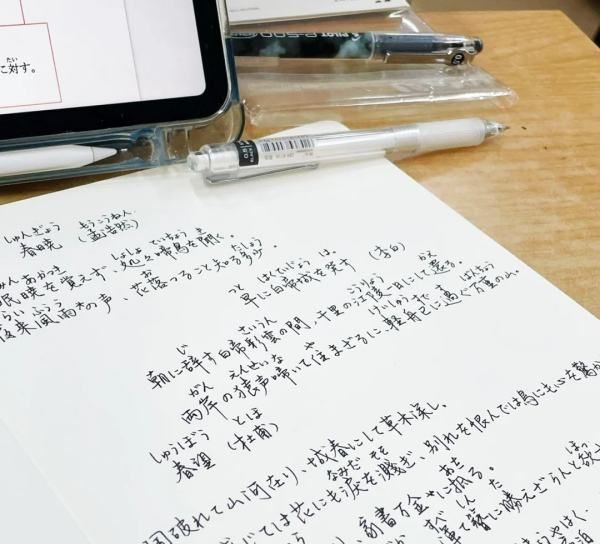 たい
に対す。
PILOT
しゅんぎょう もうこうねん
春暁 (孟浩然)
みんあかつき しょしょ ていちょう き
眠暁を覚えず、処々啼鳥を聞く。
らい ふうう お たしょう
来風雨の声、花落つること知る多少。
つと はくていじょう は
早に白帝城を発す (李白)
じ さいうん こうりょう かえ
朝に辞す白帝彩雲の間、千里の江陵一日にして還る。
がん えんせいな や けいしゅうすで ばんちょう
両岸の猿声啼いて住まざるに、軽舟已に過ぐ万重の山
しゅうぼう とほ
春望 (杜甫)
破れて山河在り、城春にして草木深し。
なみだ そそ
じては花にも涙を濺ぎ、別れを恨んでは鳥にも心を驚か
あた
家書万金に抵る。
しん た ほっ
簪に勝えざらんと欲